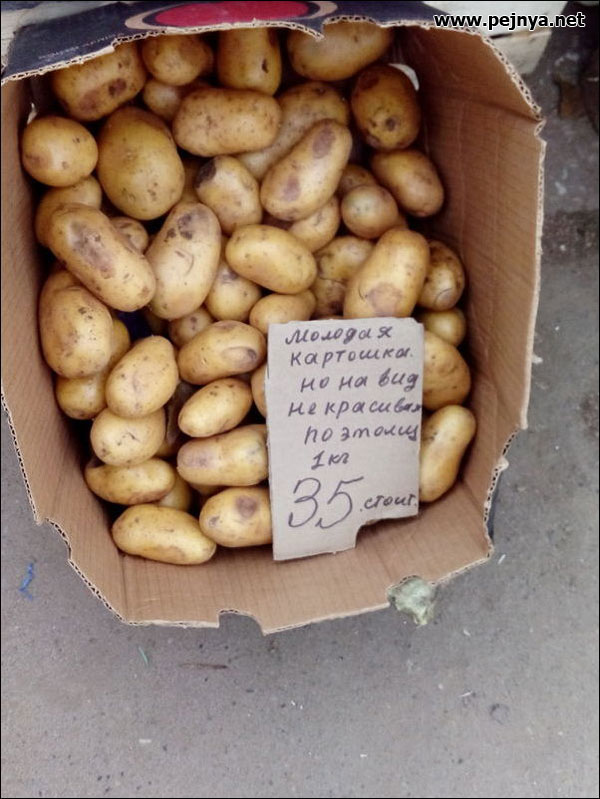 www.pejnya.net
молодая
картошка.
но на вид
не красивая
поэтому
1кг
35.стоит.